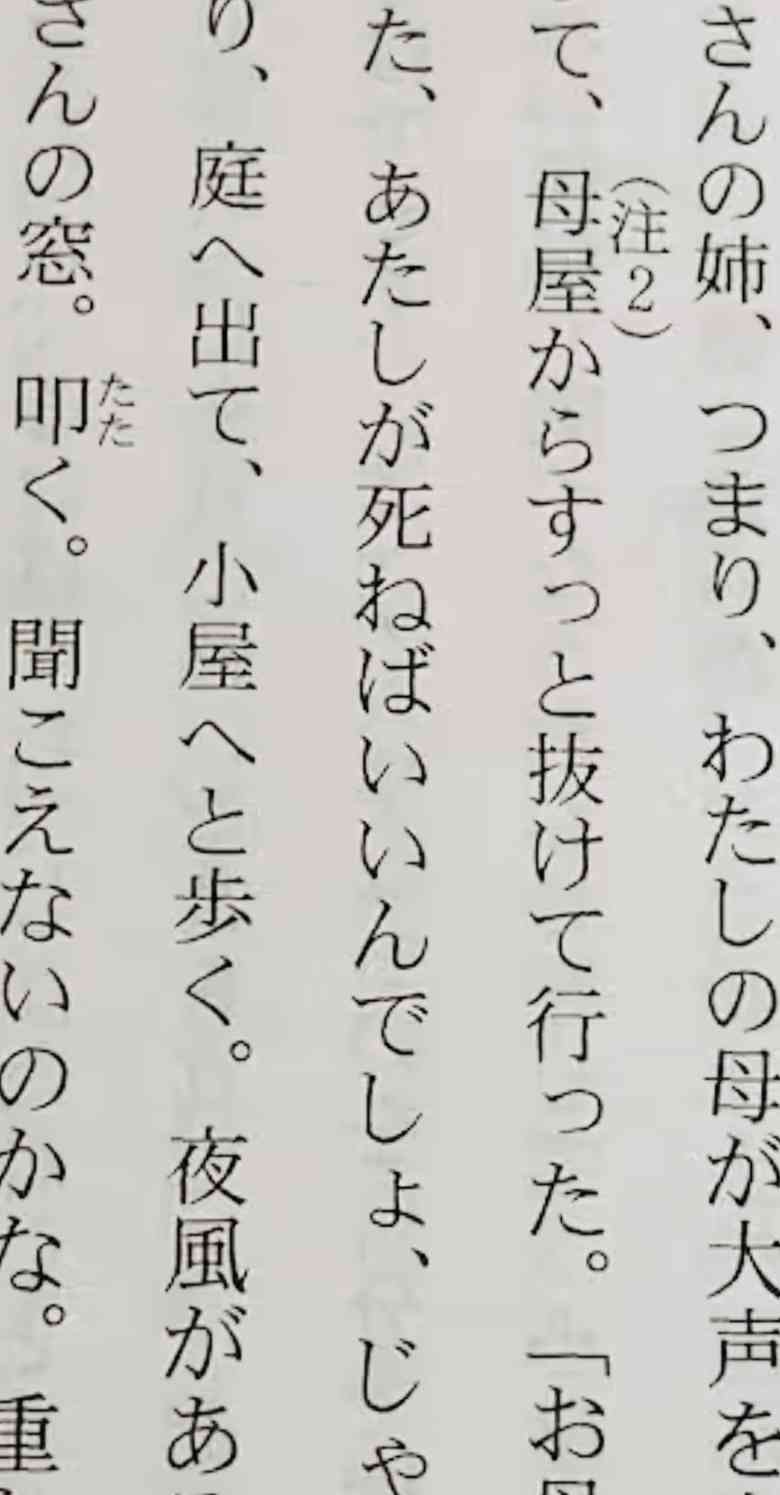 さんの姉、つまり、わたしの母が大声を
て、母屋(注2)からすっと抜けて行った。「お母
た、あたしが死ねばいいんでしょ、じゃ
り、庭へ出て、小屋へと歩く。夜風があ
さんの窓。叩(たた)く。聞こえないのかな。重